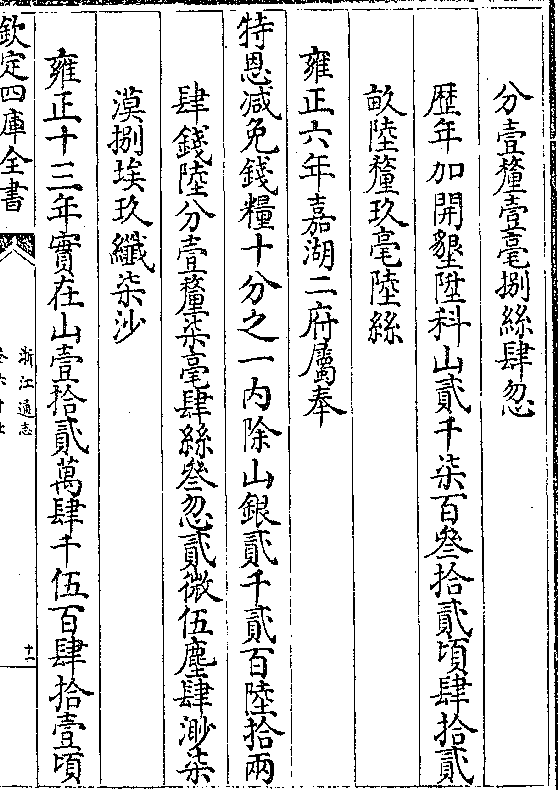 分壹釐壹毫捌絲肆忽
歴年加開墾陞科山貳千柒百叁拾貳頃肆拾貳
畝陸釐玖毫陸絲
雍正六年嘉湖二府屬奉
特恩减免錢糧十分之一内除山銀貳千貳百陸拾兩
肆錢陸分壹釐柒毫肆絲叁忽貳微伍塵肆渺柒
漠捌埃玖纖柒沙
雍正十三年實在山壹拾貳萬肆千伍百肆拾壹頃
欽定四庫全書
浙江通志
十一